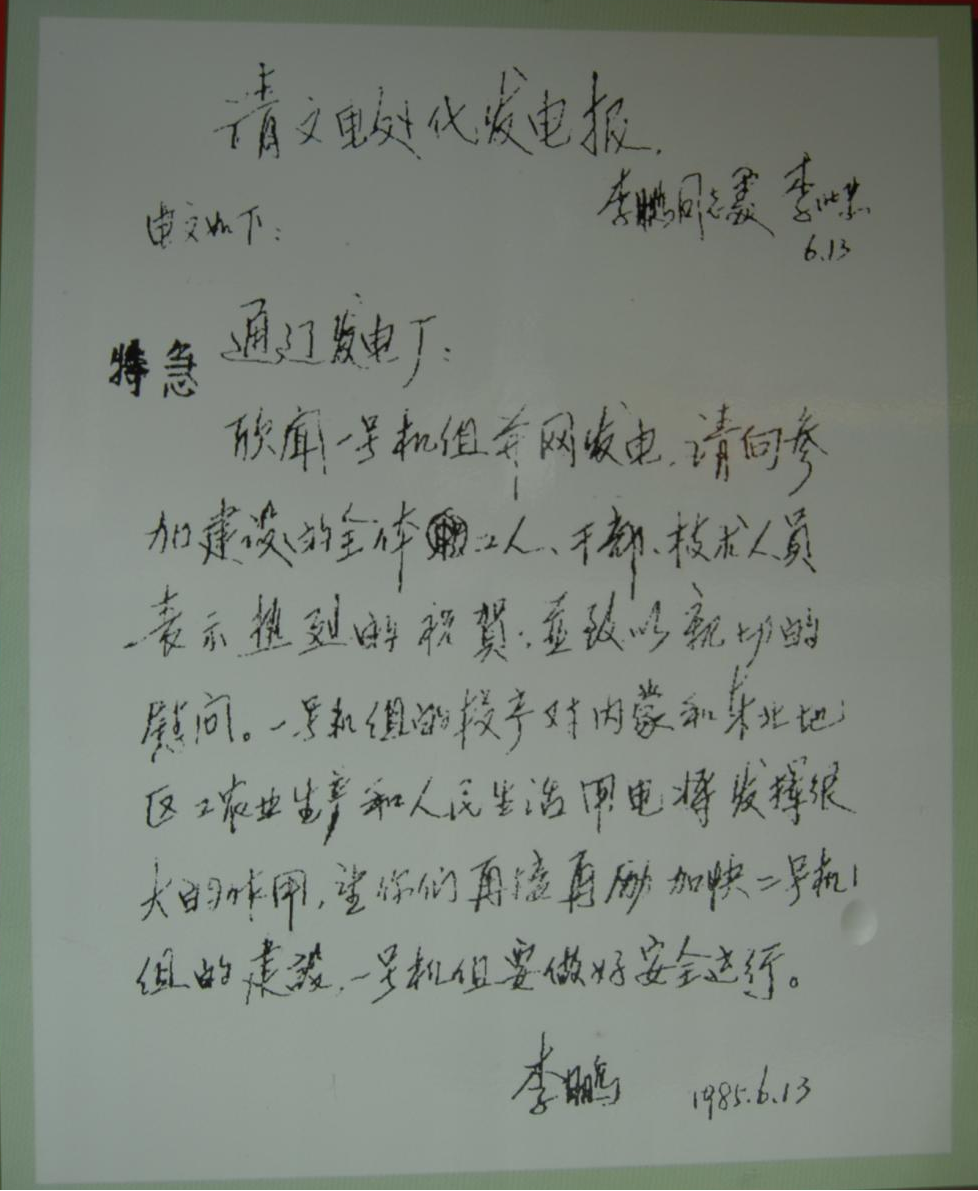 请文电处代发电报.
李鹏同志嘱 李
6.13
电文如下:
特急
通辽发电厂:
欣闻一号机组并网发电,请向参
加建设的全体工人、干部、技术人员
表示热烈的祝贺,並致以亲切的
慰问。一号机组的投产对内蒙和东北地
区工农业生产和人民生活用电将发挥很
大的作用,望你们再接再励加快二号机
组的建设,一号机组要做好安全运行。
李鹏 1985.6.13